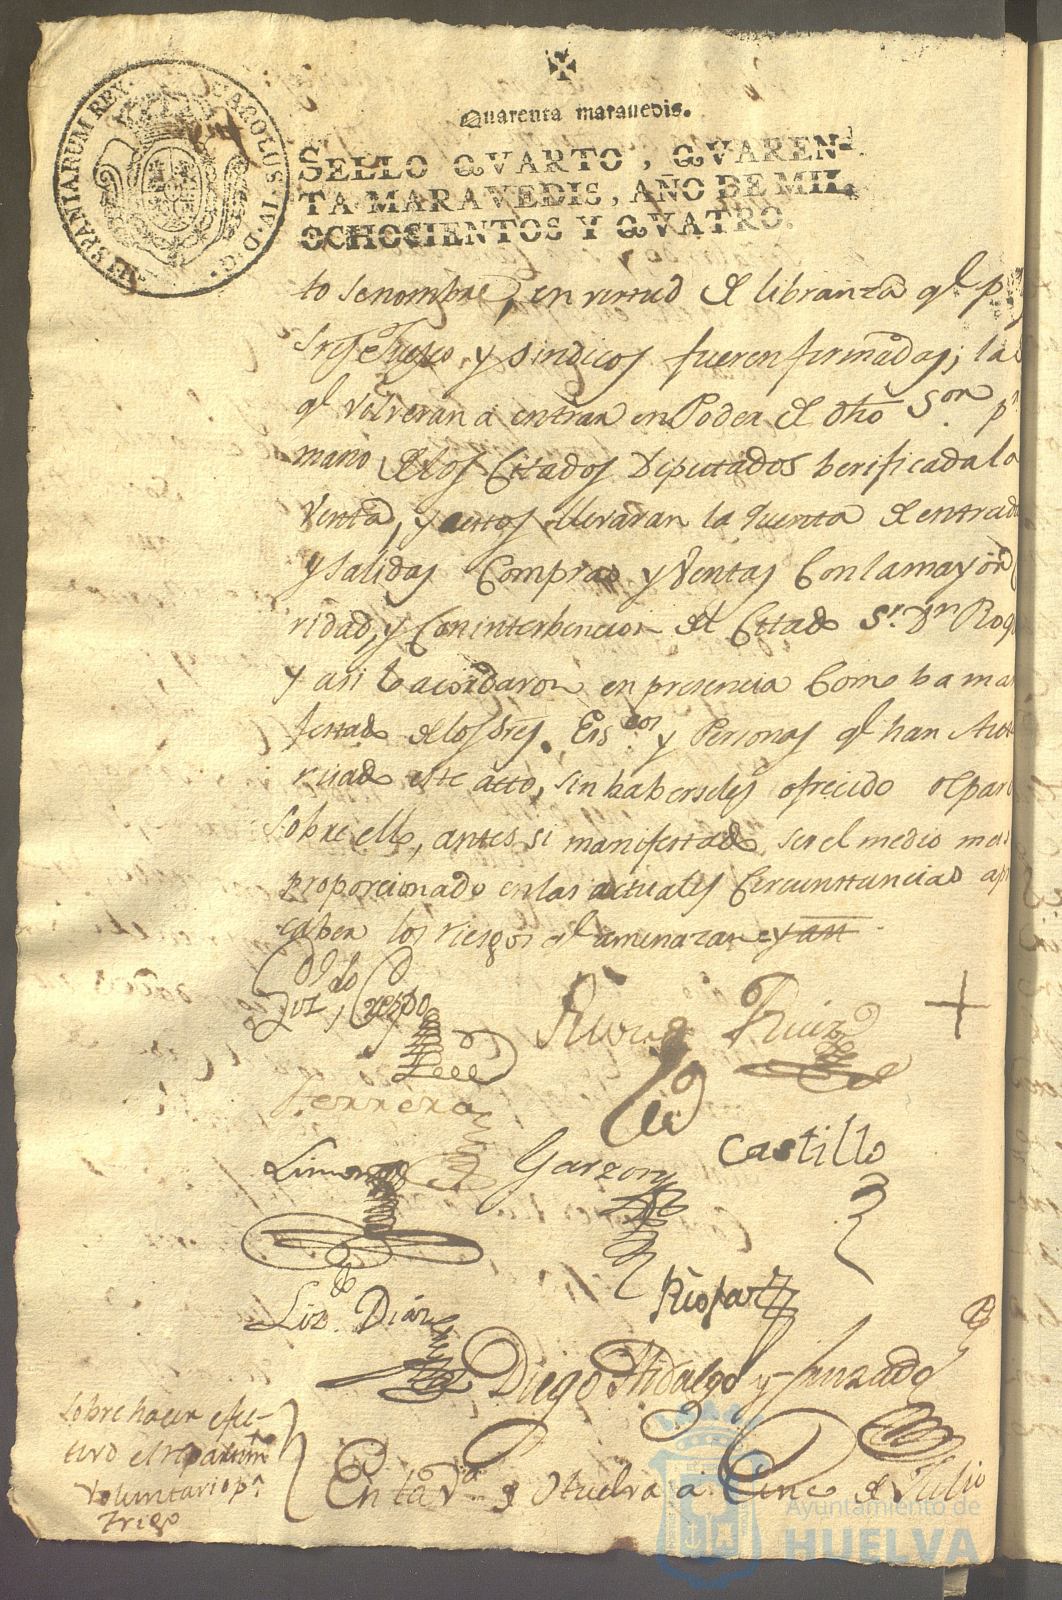 HISPANIARUM REX · CAROLUS · IV · D · G ·
Quarenta maravedis.
SELLO QVARTO, QVAREN-
TA MARAVEDIS, AÑO DE MIL
OCHOCIENTOS Y QVATRO.
to se nombre, en virtud de libranza qe. p
y sindicos fueren firmadas; las
qe. volveran a entrar en Poder del dho Sor. pr
mano de los Citados Diputados berificada la
Venta, y estos llevaran la quenta de entrada
y salidas Compras y Ventas Con la mayor
ridad, y Con interbencion del Citado Sr. Dn Roq
y asi lo acordaron en presencia Como ba ma
festado de los Sres. y Personas qe. han
este acto, sin haberseles ofrecido repar
Sobre ello, antes si manifestado ser el medio mas
proporcionado en las actuales Circunstancias
los riesgos qe. amenazan
Crespo
Ruiz
Herrera
Limon
Garzon
Castillo
Riofar
Liz.do Diaz
Diego Hidalgo y
Sobre hacer efec-
tivo el repartimto
Voluntario pa.
Trigo
En la Va. de Huelva a Cinco de Julio
Ayuntamiento de
HUELVA